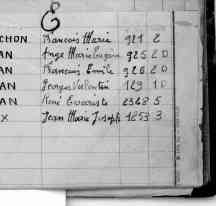 E
CHON François Marie 921 2
AN Ange Marie Eugène 925 2 D
AN François Emile 926 2 D
AN Georges Valentin 129 1 D
AN René Evariste 2348 5
X Jean Marie Joseph 1253 3